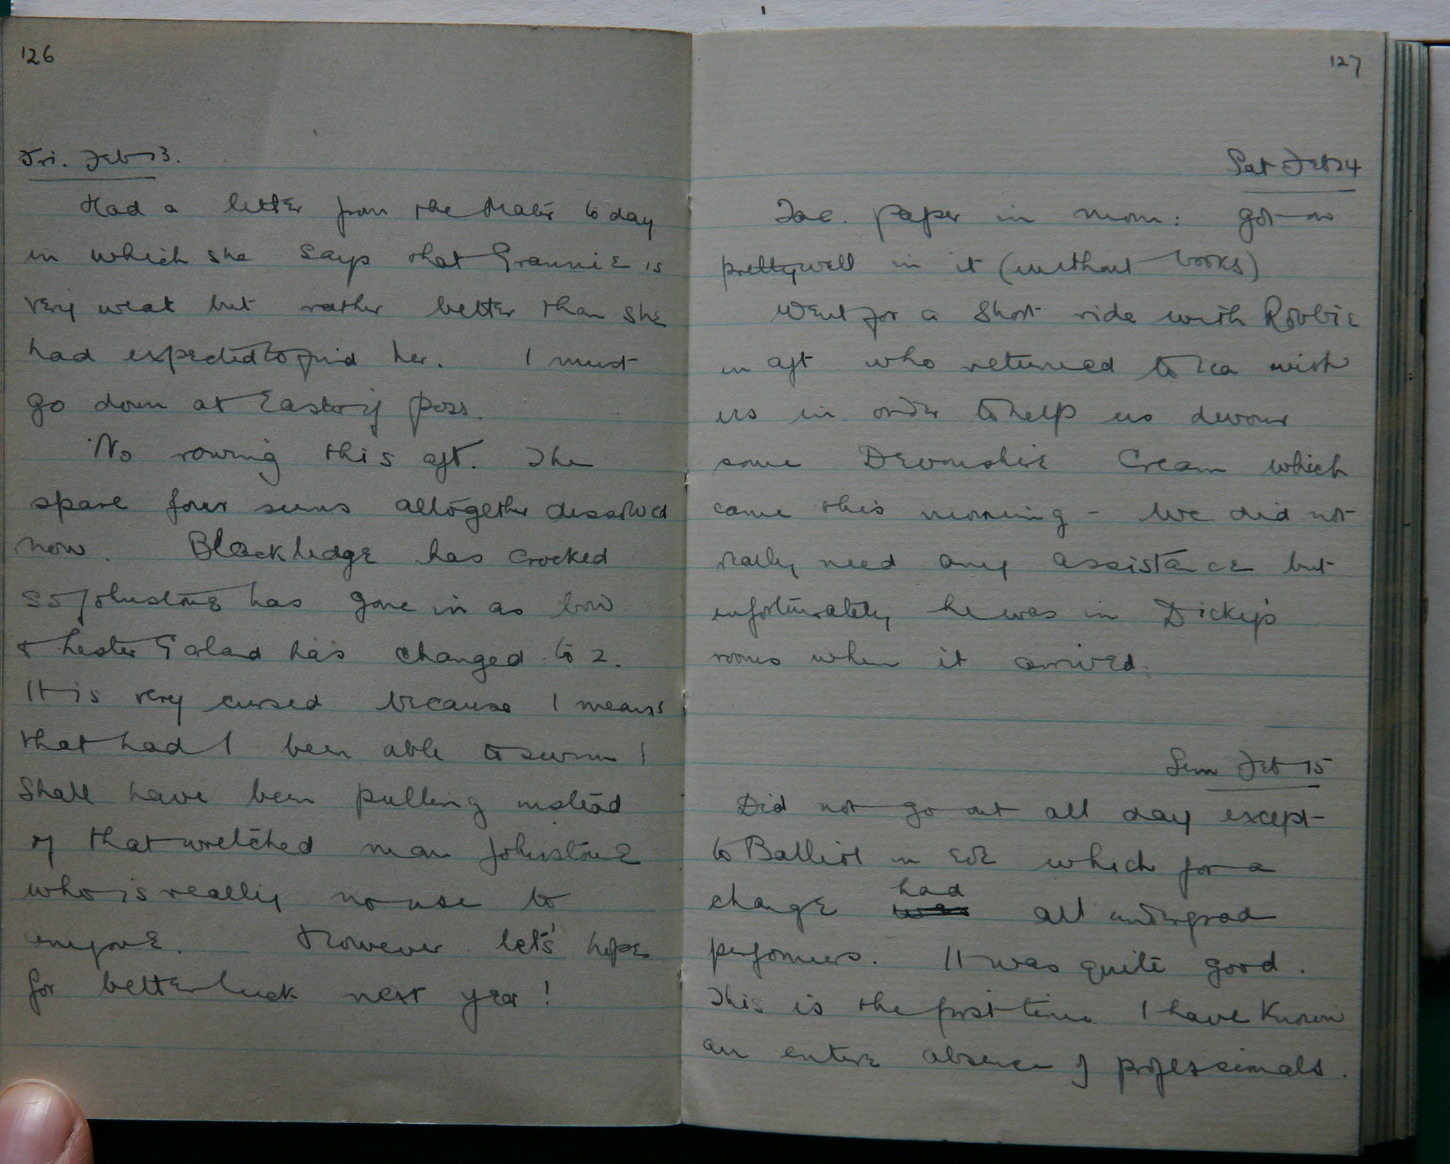 126
Fri. Feb 13.
Had a letter from the Mater to day
in which she says that Grannie is
very weak but rather better than she
had expected to find her. I must
go down at Easter if poss.
No rowing this aft. The
spare four seems altogether dissolved
now. Blackledge has crocked
so Johnstone has gone in as bow
& Lester Garland has changed to 2.
It is very cursed because I means
that had I been able to swim I
shall have been pulling instead
of that wretched man Johnstone
who is really no use to
anyone. However let's hope
for better luck next year!
127
Sat Feb 14
Tac. paper in morn: got on
pretty well in it (without books)
Went for a short ride with Robbie
in aft who returned to tea with
us in order to help us devour
some Devonshire Cream which
came this morning - We did not
really need any assistance but
unfortunately he was in Dicky's
rooms when it arrived.
Sun Feb 15
Did not go out all day except
to Balliol in eve which for a
change had all undergrad
performers. It was quite good.
This is the first time I have known
an entire absence of professionals.